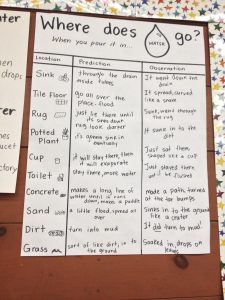 Where does WATER go?
When you pour it in...
Location Prediction Observation
Sink through the drain It went down the
inside tubes drain
Tile Floor go all over the It spread, curved
place - flood like a snake.
Rug just be there until Sunk, went through
its soaks down the rug
rug look darker
Potted it's gonna sink in It sunk in to the
Plant eventually dirt
Cup it will stay there, then Just sat there,
it will evaporate shaped like a cup
Toilet stay there, more water Just stayed there
until it flushed
Concrete makes a long line of made a path, turned
water until it runs at the tar bumps
down, makes a puddle
Sand a little flood, spread on Sinks in to the ground
over like a crater
Dirt turn into mud It did turn to mud!
Grass sort of like dirt, in to Soaked in, drops on
the ground leaves
ter